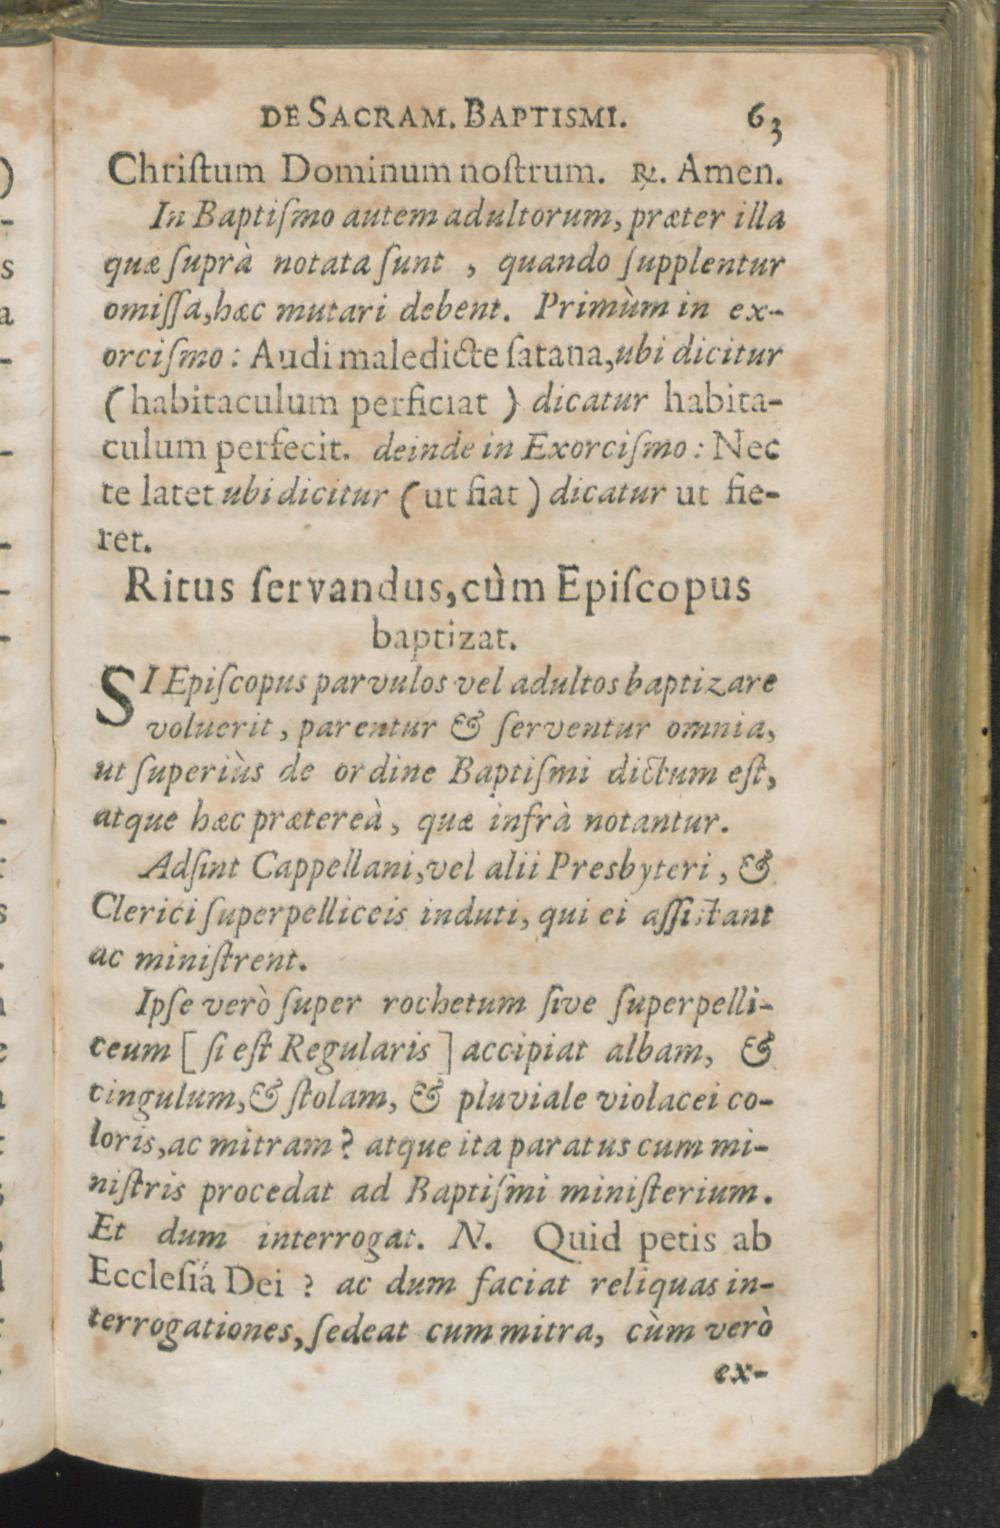 DE SACRAM. BAPTISMI. 63
Chriſtum Dominum noſtrum. ℟. Amen.
In Baptiſmo autem adultorum, præter illa
quæ ſuprà notata ſunt , quando ſupplentur
omiſſa, hæc mutari debent. Primùm in ex-
orciſmo : Audi maledicte ſatana, ubi dicitur
( habitaculum perficiat ) dicatur habita-
culum perfecit. deinde in Exorciſmo : Nec
te latet ubi dicitur ( ut fiat ) dicatur ut fie-
ret.
Ritus ſervandus, cùm Epiſcopus
baptizat.
SI Epiſcopus parvulos vel adultos baptizare
voluerit , parentur & ſerventur omnia,
ut ſuperiùs de ordine Baptiſmi dictum eſt,
atque hæc prætereà , quæ infrà notantur.
Adſint Cappellani, vel alii Presbyteri , &
Clerici ſuperpelliceis induti, qui ei aſſiſtant
ac miniſtrent.
Ipſe verò ſuper rochetum ſive ſuperpelli-
ceum [ ſi eſt Regularis ] accipiat albam, &
cingulum, & ſtolam, & pluviale violacei co-
loris, ac mitram ? atque ita paratus cum mi-
niſtris procedat ad Baptiſmi miniſterium.
Et dum interrogat. N. Quid petis ab
Eccleſiá Dei ? ac dum faciat reliquas in-
terrogationes, ſedeat cum mitra, cùm verò
ex-